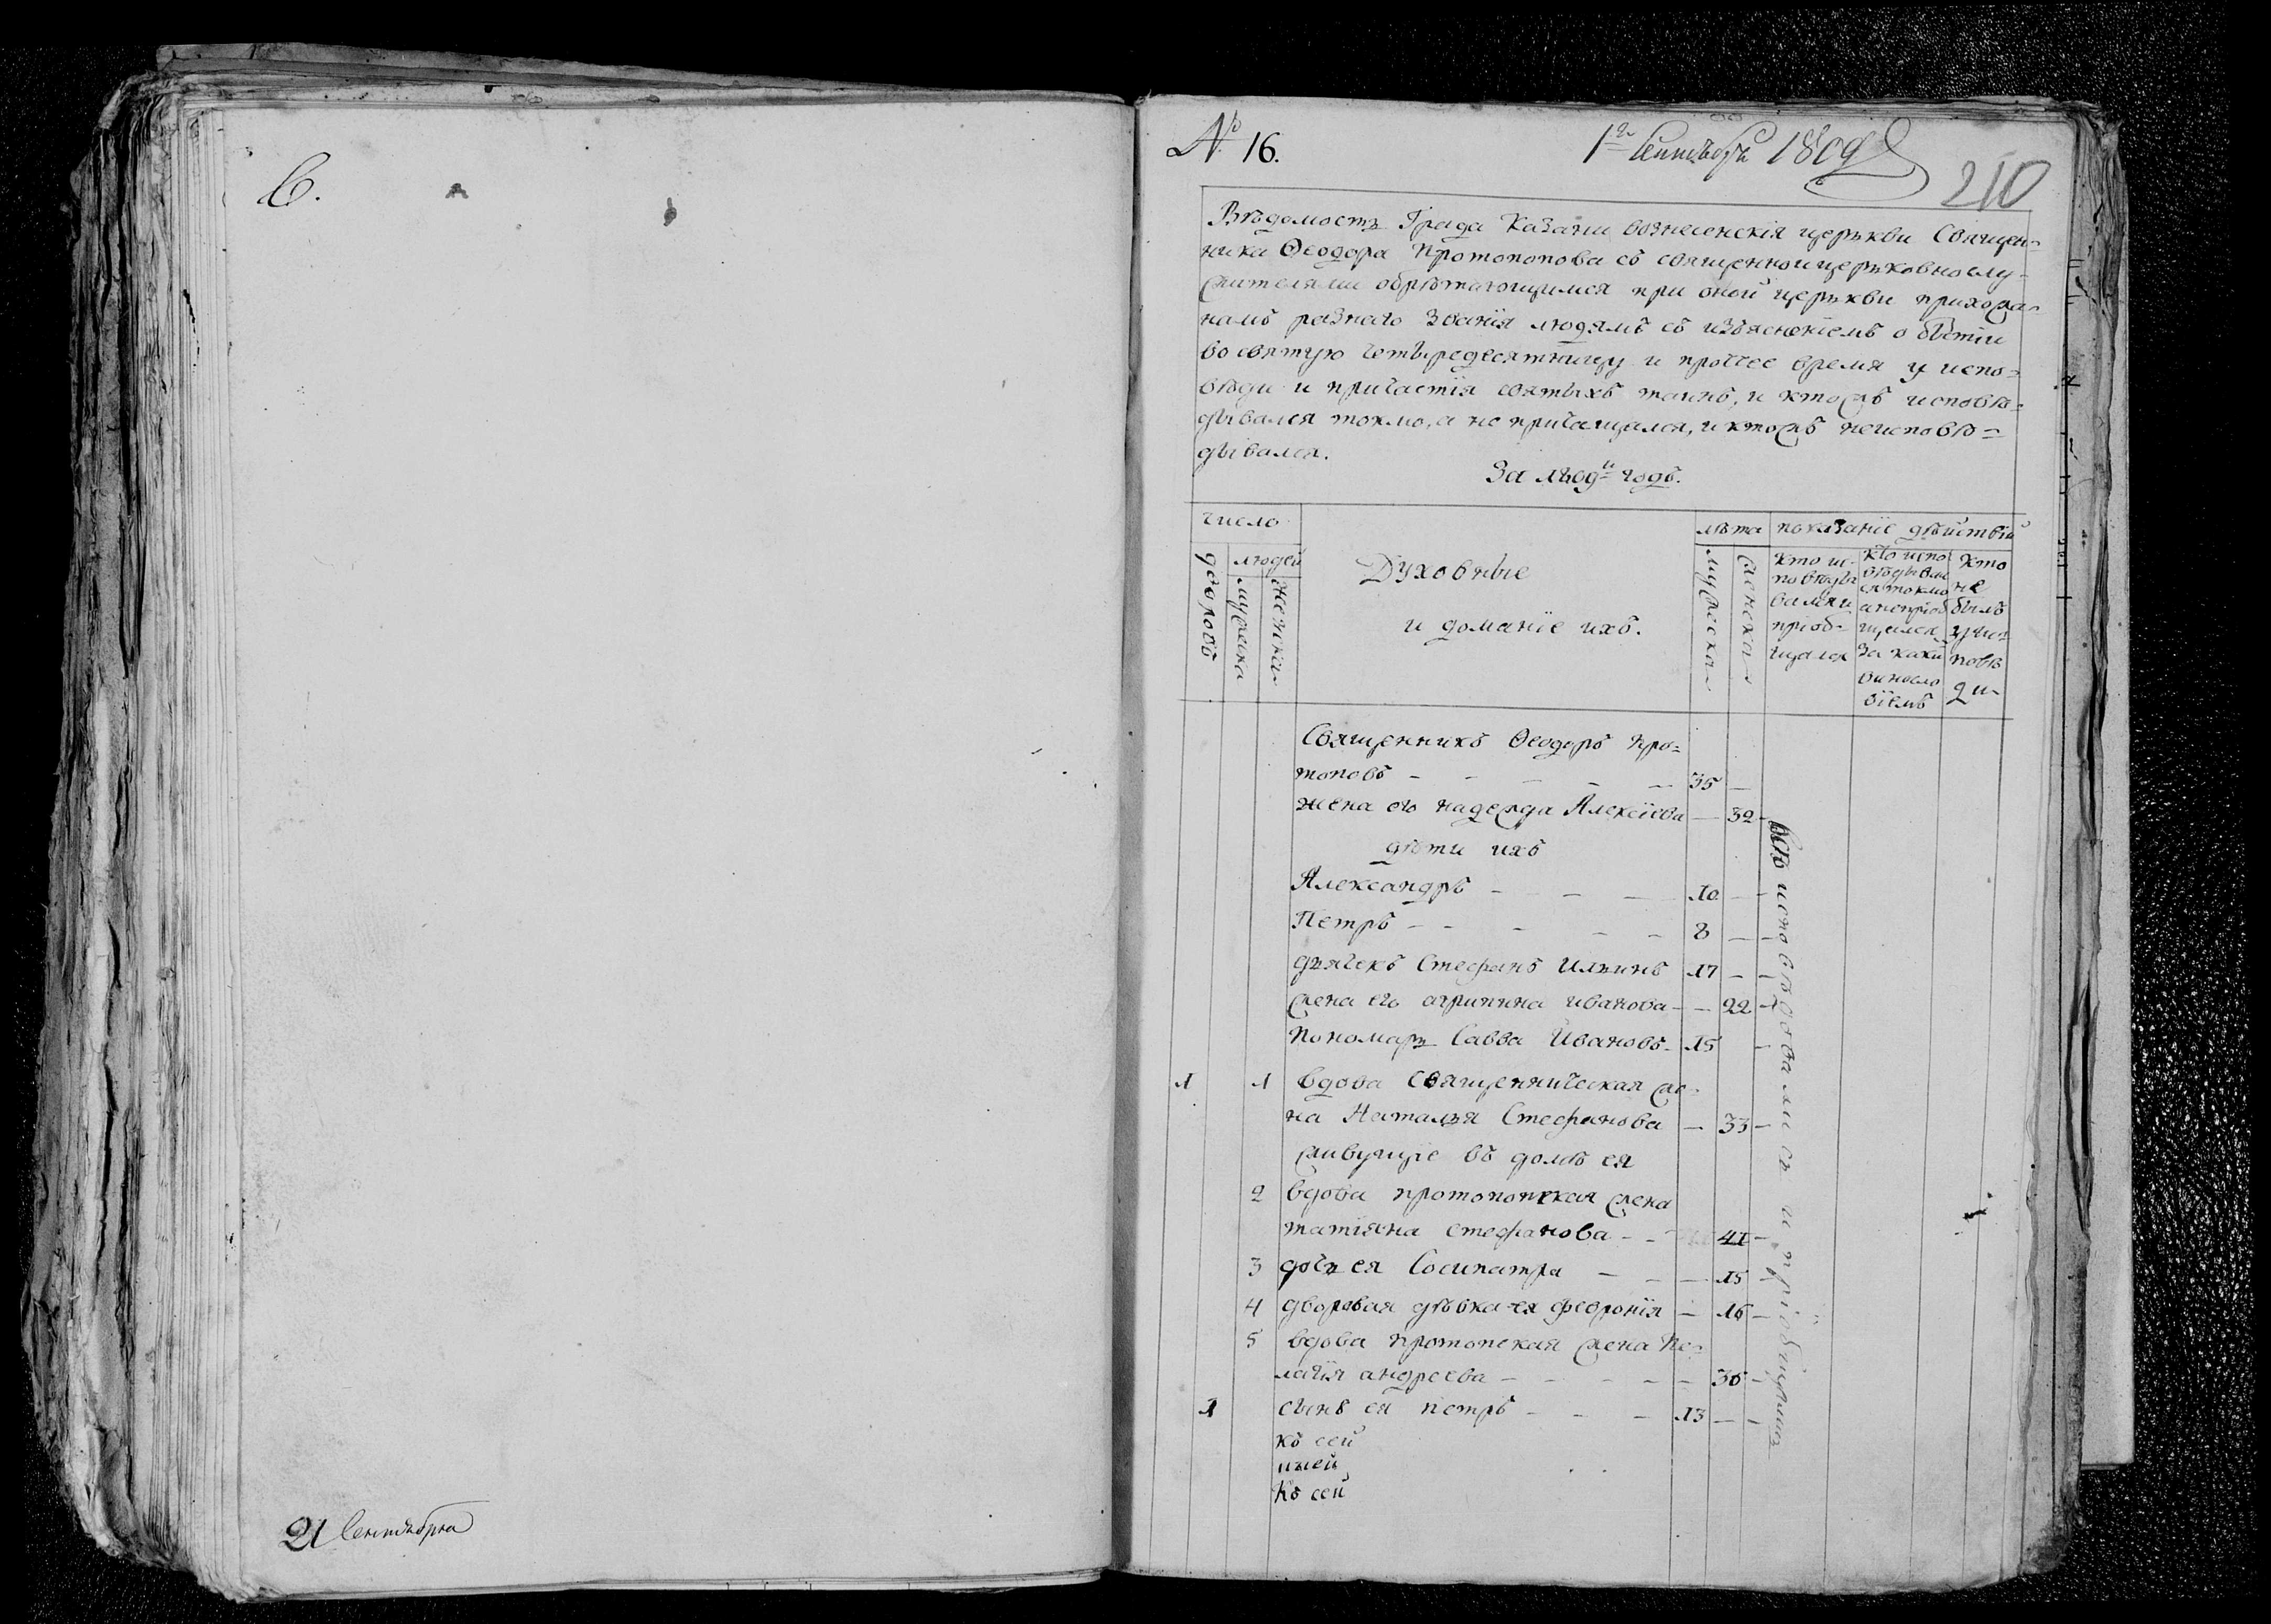 С.
21 Сентября
№ 16.
1го Сентября 1809
210
Вѣдомость Града Казани вознесенскія церькви Священ=
ника Ѳеодора Протопопова съ священноицерьковнослу-
жителями обрѣтающимся при оной церькви прихожа=
намъ разнаго званія людямъ съ изъясненіемъ о бытіи
во святую четыредесятницу и протчее время у испо=
вѣди и причастія святыхъ таинъ, и ктожъ исповѣ=
дывался токмо, а не причащался, и ктожъ неисповѣ=
дывался.
За годъ.
число
лѣта показаніе дѣйствій
дворовъ
людей
мужеска
женска
Духовные
и домашніе ихъ.
мужеска
женска
кто ис-
повѣды
вались и
пріоб-
щался
кто испо
вѣдывал
ся токмо
а непріоб
щался
за какй
винносло
віемъ
кто
не
былъ
у ис=
повѣ
ди
Священникъ Ѳеодоръ Про=
топовъ - - - - - 35 -
жена его надежда Алексіева - 32 -
дѣти ихъ
Александръ - - - 10 - -
Петръ - - - - - 8 - -
дьячекъ Стефанъ Ильинъ 17 - -
жена его агрипина иванова - - 22 -
Пономарь Савва Ивановъ - 15 -
1 1 вдова священническая же-
на Наталья Стефанова - 33 -
живущіе въ домѣ ея
2 вдова протопопская жена
татіяна стефанова - - 41 -
3 дочь ея Сосипатра - - - 15 -
4 дворовая дѣвка ея феоронія - 16 -
5 вдова протопская жена Пе=
лагія андреева - - - - - 36 -
1 сынъ ея петръ - - - 13 - -
къ сей
къ сей
Всѣ исповѣдовались и пріобщались